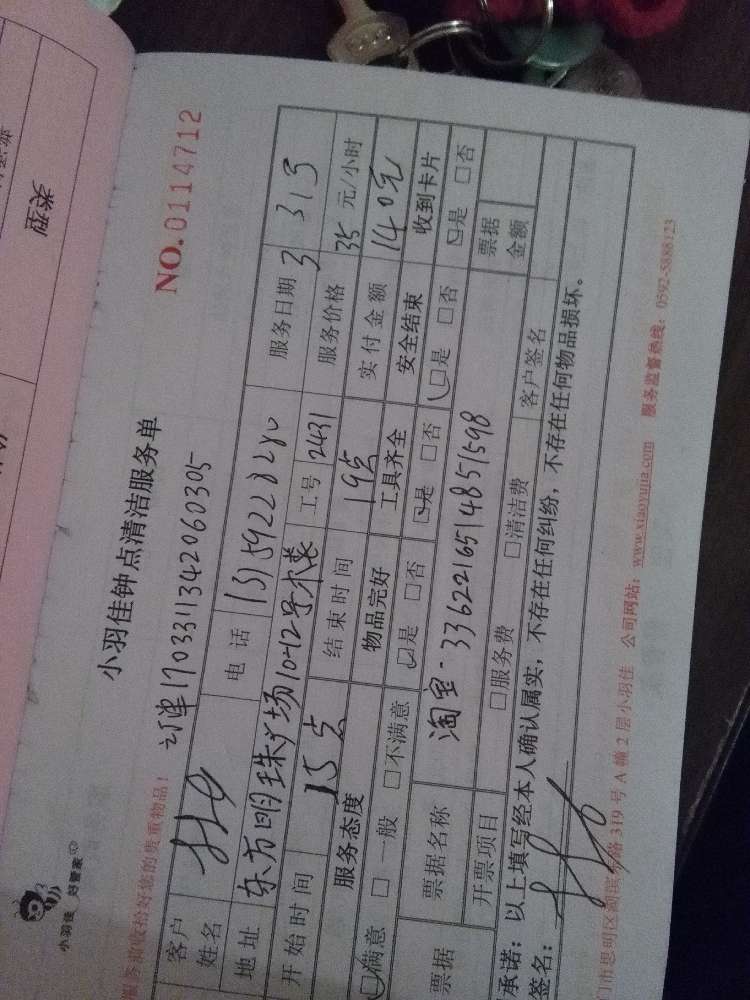 类型
小羽佳 好管家
小羽佳钟点清洁服务单
NO.0114712
服务前收拾好您的贵重物品！ 订单1703311342060305
客户姓名 电话 服务日期 3 31 5
地址 东方明珠广场 工号 2431 服务价格 35 元/小时
开始时间 15点 结束时间 19点 实付金额 140元
服务态度 物品完好 工具齐全 安全结束 收到卡片
□满意 □一般 □不满意 □是 □否 □是 □否 □是 □否 □是 □否
票据 票据名称 淘宝-3362216514851598 票据金额
开票项目 □服务费 □清洁费
承诺：以上填写经本人确认属实，不存在任何纠纷，不存在任何物品损坏。
签名： 客户签名
门市思明区湖滨 路 319 号 A 幢 2 层小羽佳 公司网站：www.xiaoyujia.com 服务监督热线：0592-5888123